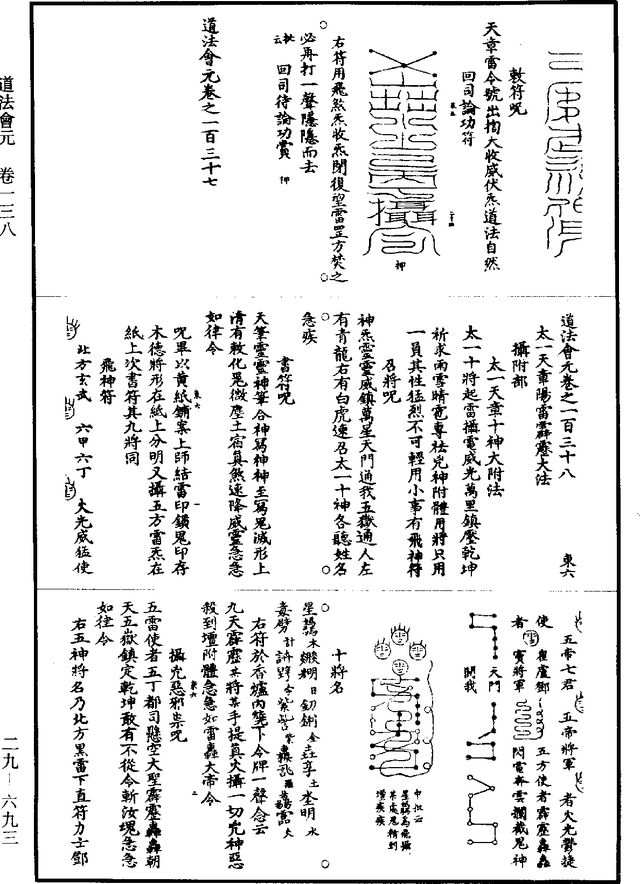 敕符呪
天章雷令號出揭大收威伏炁道法自然
回司論功符
押
右符用飛煞炁收炁閉復望雷罡方焚之
必再打一聲隱隱而去
批云 回司待論功賞 押
道法會元卷之一百三十七
道法會元卷之一百三十八 東六
太一天章陽雷霹靂大法
攝附部
太一天章十神大附法
太一十將起雷攝電威光萬里鎮壓乾坤
祈求雨雪晴電專祛兇神附體用將只用
一員其性猛烈不可輕用小事有飛神符
召將呪
神炁靈靈威鎮萬星天門通我五嶽通人左
有青龍右有白虎速召太一十神各聽姓名
急疾
書符呪
天筆靈靈神筆合神寫神神至寫鬼滅形上
清有敕化鬼微塵土宿真煞速降威靈急急
如律令
呪畢以黃紙鋪案上師結雷印鎖鬼印存
木德將形在紙上分明又攝五方雷炁在
紙上次書符其九將同
飛神符
北方玄武 六甲六丁 火光威猛使
五帝七君 五帝將軍 者火光鬱捷
使 翟盧鄧 五方使者霹靂轟轟
者 竇將軍 閃電奔雲攔截鬼神
天門
開我
中批云
十將名
右符於香爐內燒下令牌一聲念云
九天霹靂其將某手提真火攝一切兇神惡
殺到壇附體急急如雷轟大帝令
攝兇惡邪祟呪
五雷使者五丁都司懸空大聖霹靂轟轟朝
天五嶽鎮定乾坤敢有不從令斬汝魂急急
如律令
右五神將名乃北方黑雷下直符力士鄧
道法會元 卷一三八
二九-六九三